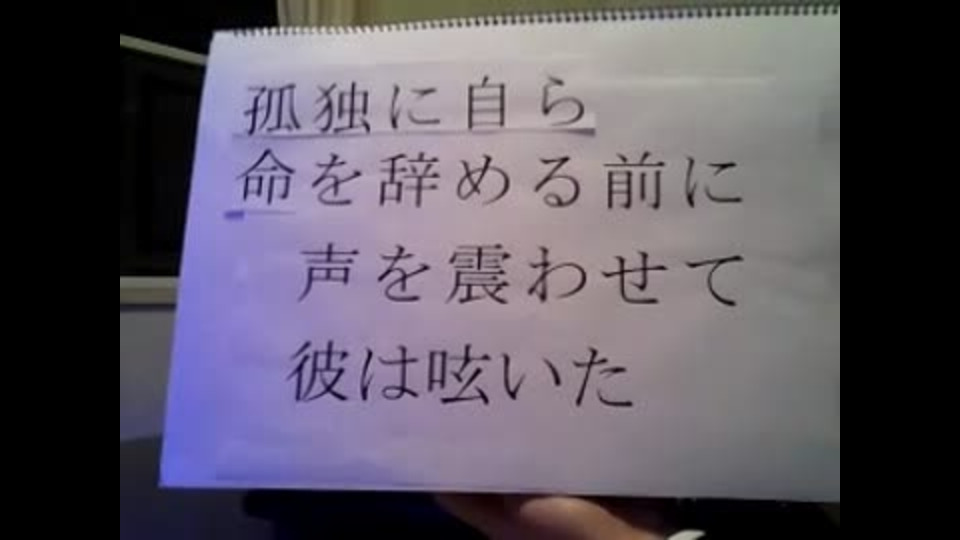 孤独に自ら
命を辞める前に
声を震わせて
彼は呟いた